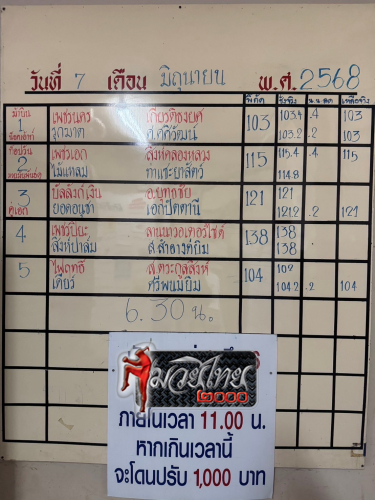 วันที่ 7 เดือน มิถุนายน พ.ศ. 2568
พิกัด ชั่งจริง น.น.ลด เหลือจริง
1 เพชรนคร เกียรติยงยศ 103 103.4 .4 103
รุกฆาต ส.ศศิวัฒน์ 103.2 .2 103
2 เพชรเอก สิงห์คลองหลวง 115 115.4 .4 115
ไม้แหลม กำแชะยาสัตว์ 114.8
3 บัลลังก์เงิน อ.ยุทธชัย 121 121
คู่เอก ยอดอนชา เอกปัตตานี 121.2 .2 121
4 เพชรปิยะ ลานนาวอเตอร์ไซด์ 138 138
สิงห์ปาล์ม ส.สำอางค์ยิม 138
5 104 102
เดียว์ ศรีพนมยิม 104.2 .2 104
6.30 น.
มวยไทย
๒๐๐๐
ภายในเวลา 11.00 น.
หากเกินเวลานี้
จะโดนปรับ 1,000 บาท